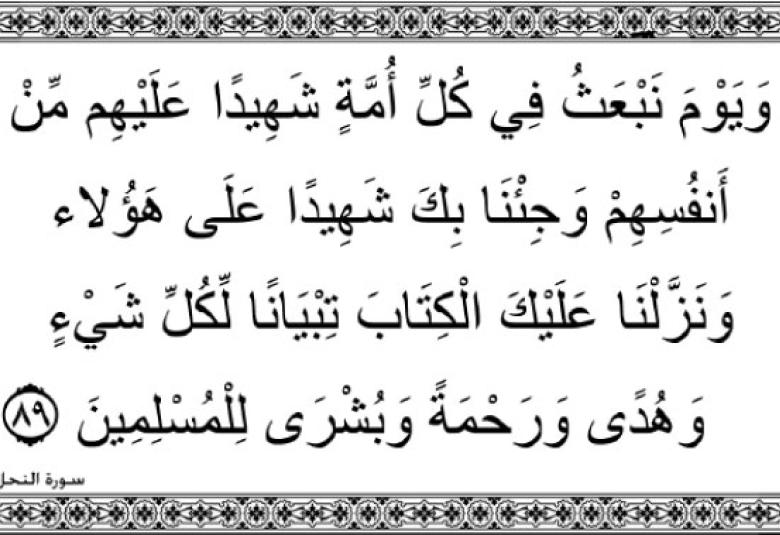 وَيَوْمَ نَبْعَثُ فِي كُلِّ أُمَّةٍ شَهِيدًا عَلَيْهِم مِّنْ
أَنفُسِهِمْ وَجِئْنَا بِكَ شَهِيدًا عَلَى هَؤُلاء
وَنَزَّلْنَا عَلَيْكَ الْكِتَابَ تِبْيَانًا لِّكُلِّ شَيْءٍ
وَهُدًى وَرَحْمَةً وَبُشْرَى لِلْمُسْلِمِينَ ٨٩
سورة النحل